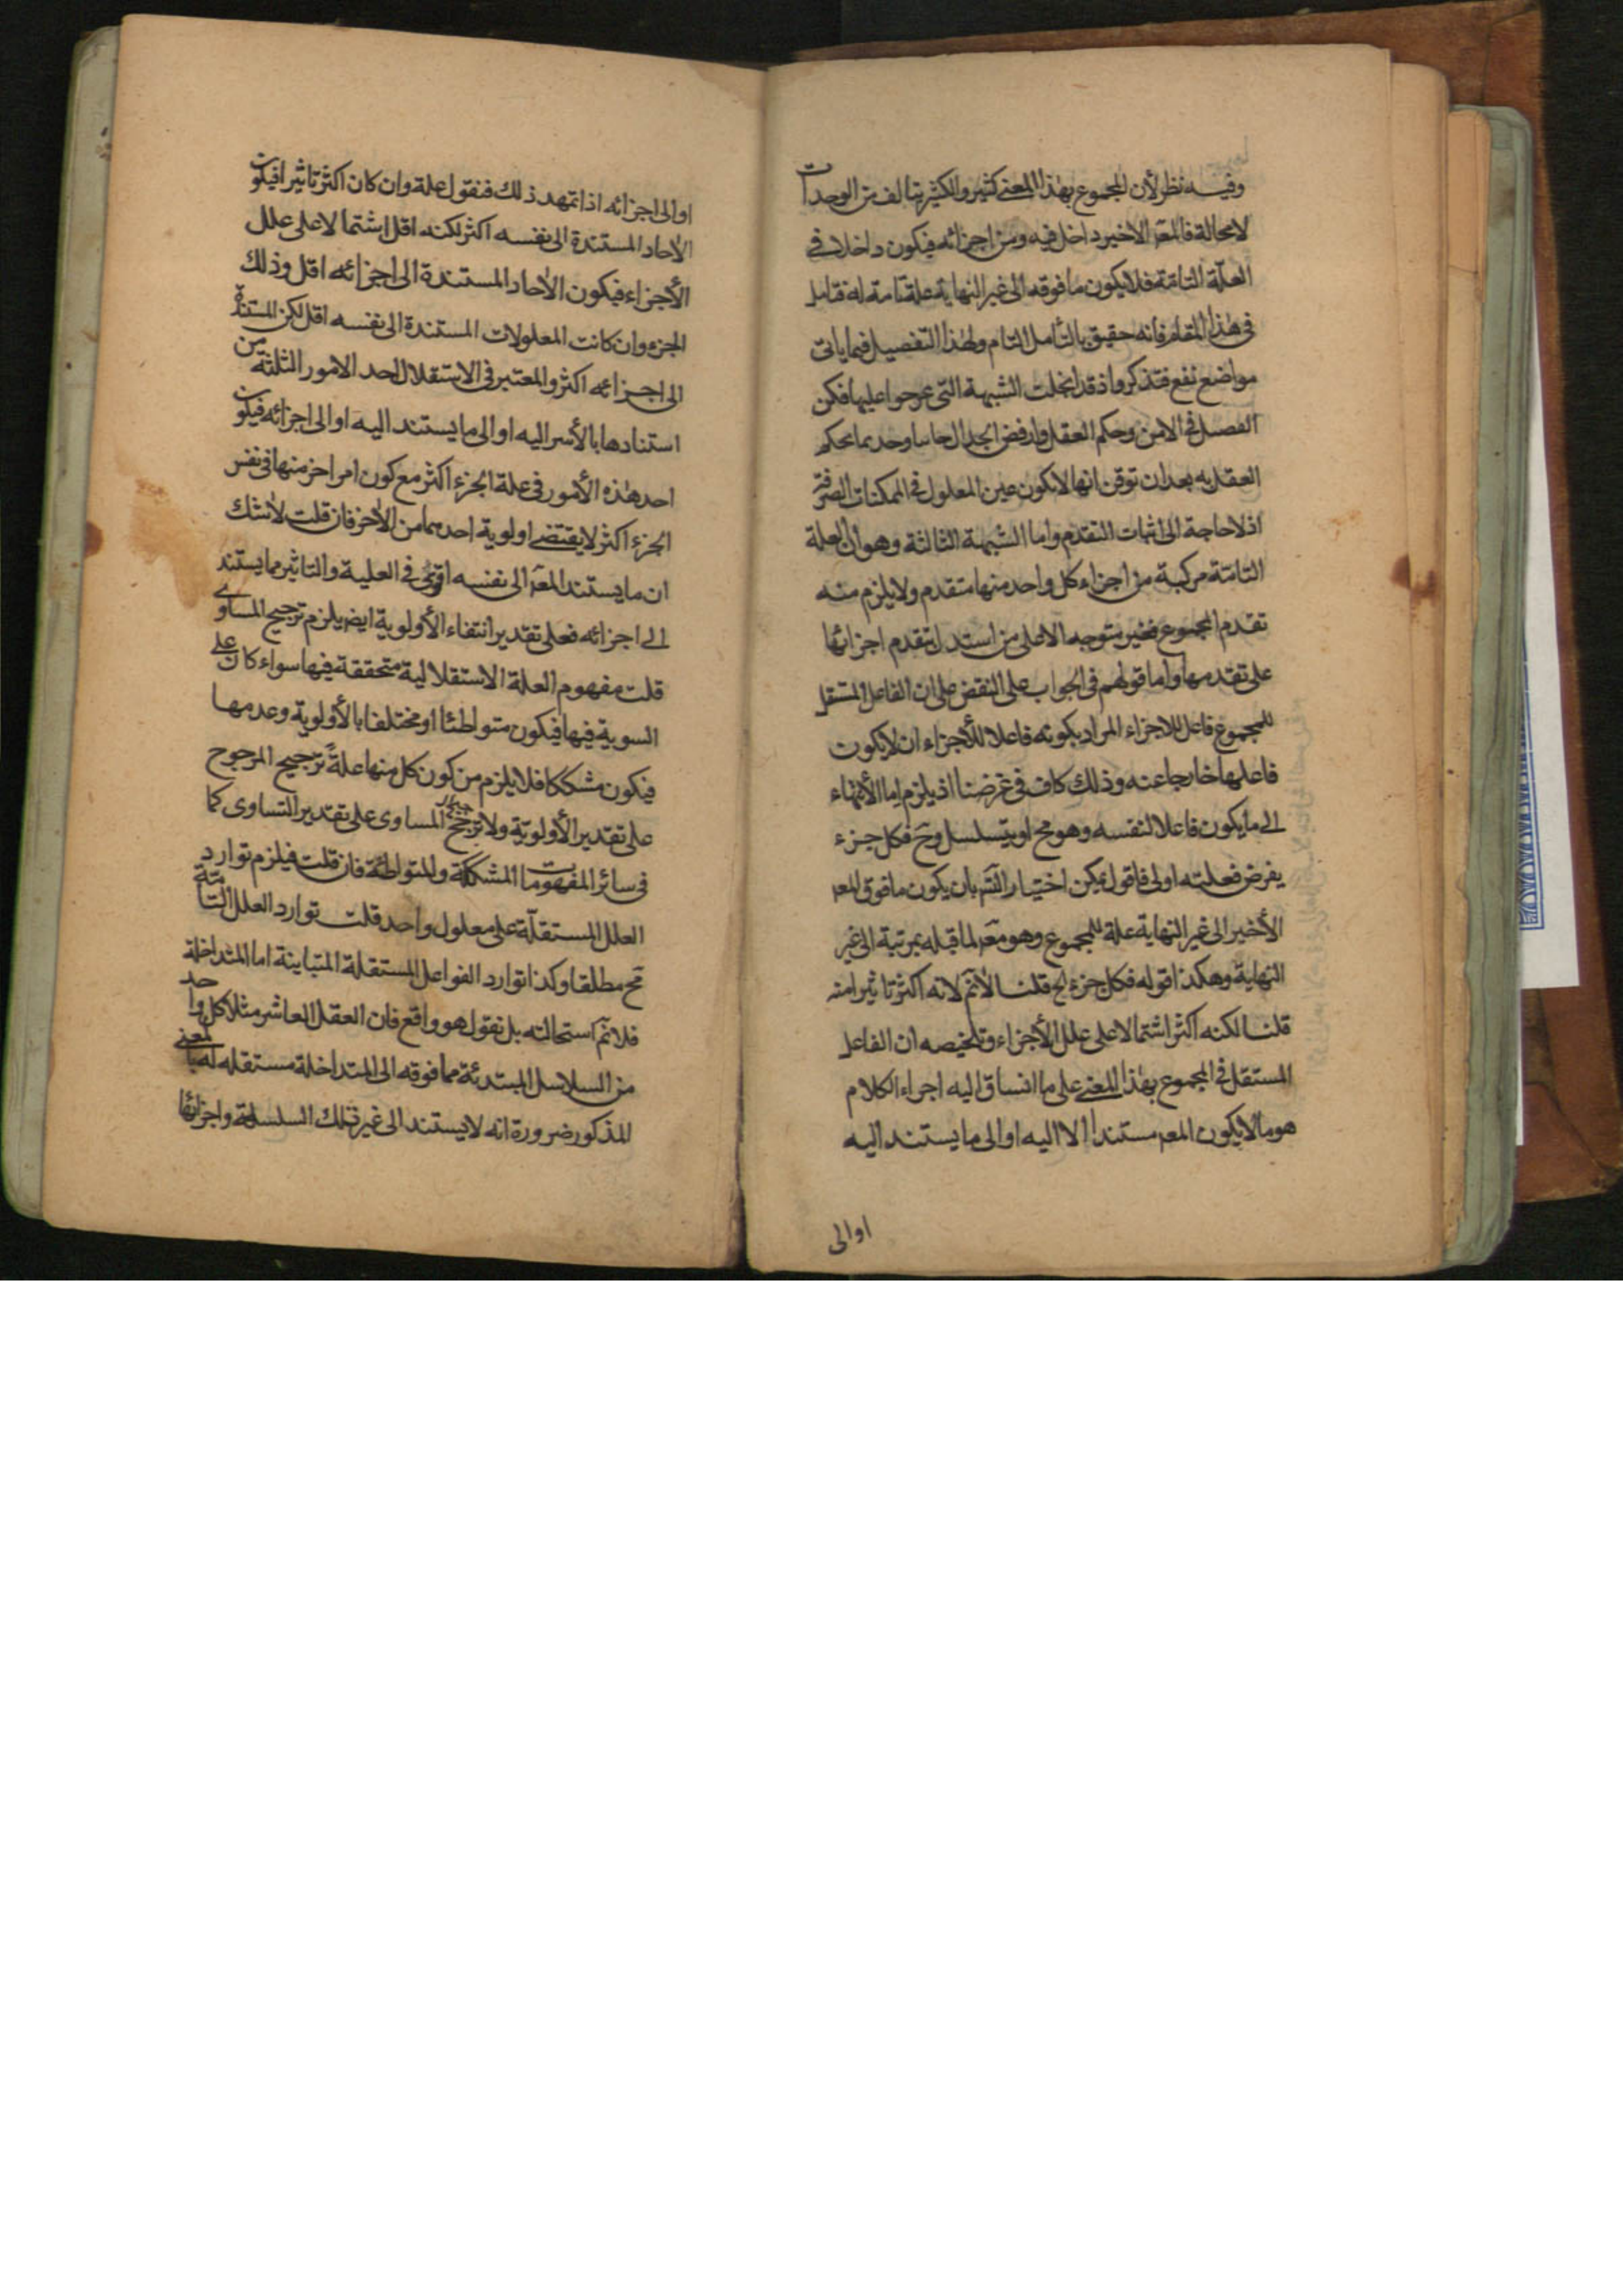 وفيه نظر لأن المجموع بهذا المعنى كثير والكثير يتالف من الوحدات
لا محالة فالمعه الاخير داخل فيه ومن اجزائه فيكون داخلا في
العلّة التامّة فلا يكون ما فوقه الى غير النهاية علة تامة له فتامل
في هذا المقام فانه حقيق بالتأمل التام ولهذا التفصيل فيما ياتى
مواضع نفع فتذكر واذ قد انحلت الشبهة التى عرجوا عليها فكن
الفصل في الامر وحكم العقل وارفض الجدال جاسا وحد بما يحكم
العقل به بعد ان توقن انها لا يكون عين المعلول في الممكنات الصرفة
اذ لا حاجة الى اثبات التقدم واما الشبهة الثالثة وهو ان العلة
التامّة مركبة من اجزاء كل واحد منها متقدم ولا يلزم منه
تقدم المجموع فغير متوجه الا على من استدل بتقدم اجزائها
على تقدمها واما قولهم في الجواب على النقض على ان الفاعل المستقل
للمجموع فاعل للاجزاء المراد بكونه فاعلا للأجزاء ان لا يكون
فاعلها خارجا عنه وذلك كاف في غرضنا اذ يلزم اما الأنتهاء
الى ما يكون فاعلا لنفسه وهو مح او يتسلسل وح فكل جزء
يفرض فعلته اولى فاقول يمكن اختيار الشه بان يكون ما فوق المعه
الأخير الى غير النهاية علة للمجموع وهو معه لما قبله بمرتبة الى غير
النهاية وهكذا قوله فكل جزء الخ قلنا لأنم لانه اكثر تاثيرا منه
قلنا لكنه اكثر اشتمالا على علل الأجزاء وتلخيصه ان الفاعل
المستقل في المجموع بهذا المعنى على ما انساق اليه اجراء الكلام
هو ما لا يكون المعه مستندا الا اليه او الى ما يستند اليه
او الى
او الى اجزائه اذا تمهد ذلك فنقول علة وان كان اكثر تاثيرا فيكون
الآحاد المستندة الى نفسه اكثر لكنه اقل اشتمالا على علل
الأجزاء فيكون الآحاد المستندة الى اجزائه اقل وذلك
الجزء وان كانت المعلولات المستندة الى نفسه اقل لكن المستندة
الى اجزائه اكثر والمعتبر في الاستقلال احد الامور الثلثة من
استنادها بالأسر اليه او الى ما يستند اليه او الى اجزائه فيكون
احد هذه الأمور في علة الجزء اكثر مع كون امر اخر منها في نفس
الجزء اكثر لا يقتضى اولوية احدهما من الأخر فان قلت لا شك
ان ما يستند المعه الى نفسه اقوى في العلية والتاثير مما يستند
الى اجزائه فعلى تقدير انتفاء الأولوية ايضا يلزم ترجيح المساوى
قلت مفهوم العلة الاستقلالية متحققة فيها سواء كان على
السوية فيها فيكون متواطئا او مختلفا بالأولوية وعدمها
فيكون مشككا فلا يلزم من كون كل منها علة ترجيح المرجوح
على تقدير الأولويّة ولا ترجيح المساوى على تقدير التساوى كما
في سائر المفهومات المشككة والمتواطئة فان قلت فيلزم توارد
العلل المستقلّة على معلول واحد قلت توارد العلل التامّة
مح مطلقا وكذا توارد الفواعل المستقلة المتباينة اما المتداخلة
فلا نم استحالته بل نقول هو واقع فان العقل العاشر مثلا كل واحد
من السلاسل المبتدئة مما فوقه الى المتداخلة مستقله له بالمعنى
المذكور ضرورة انه لا يستند الى غير تلك السلسلة واجزائها